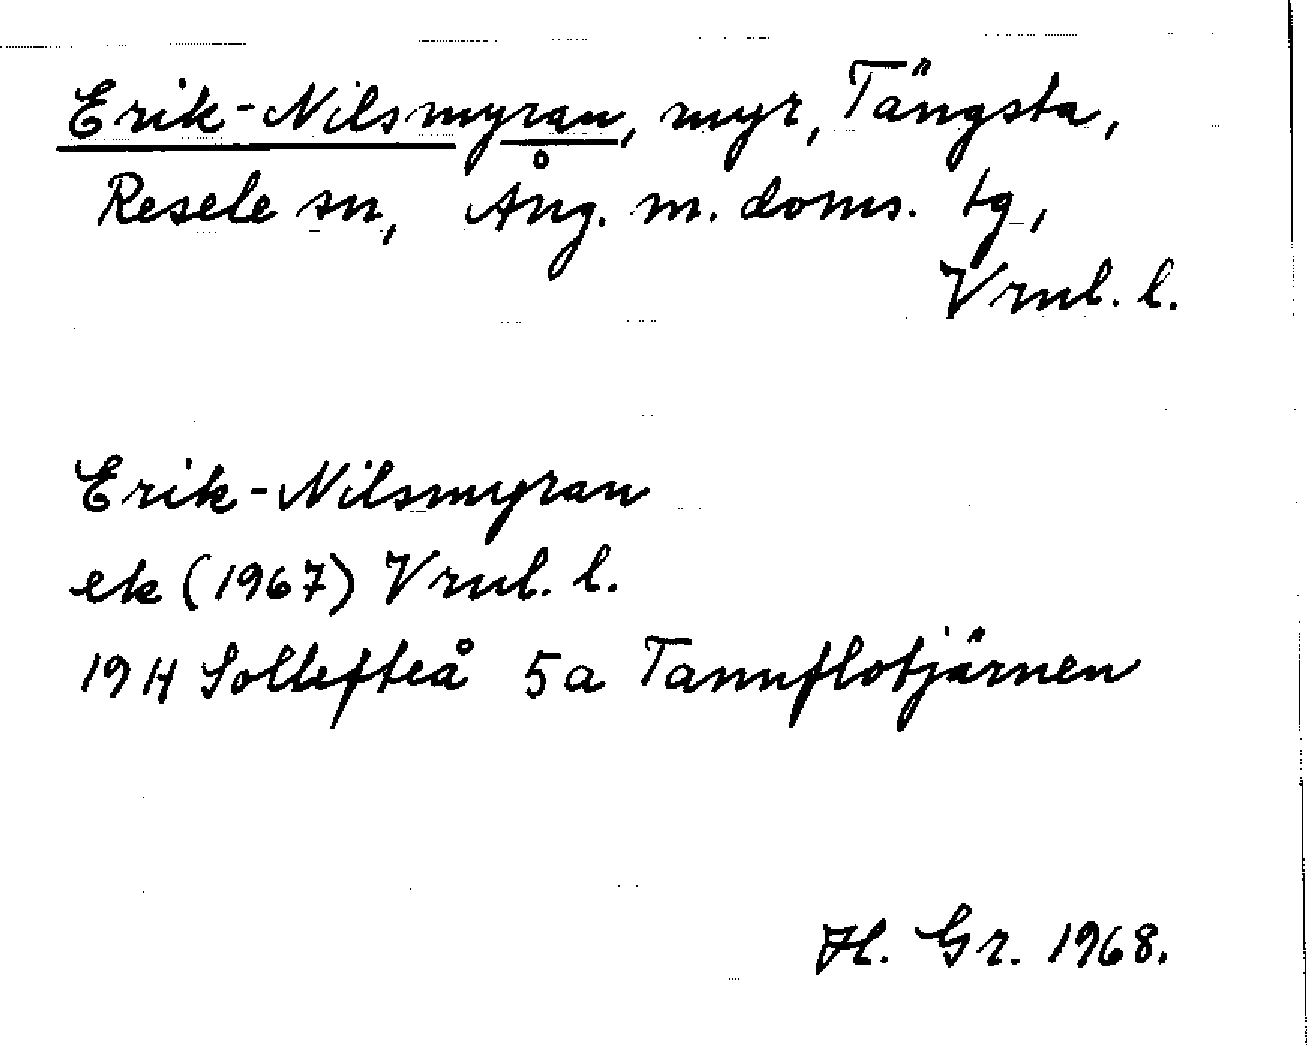 Erik-Nilsmyran, myr, Tängsta,
Resele sn, Ång. m. doms. tg,
Vrnl. l.
Erik-Nilsmyran
ek (1967) Vrnl. l.
19 H Sollefteå 5a Tannflotjärnen
H. Gr. 1968.